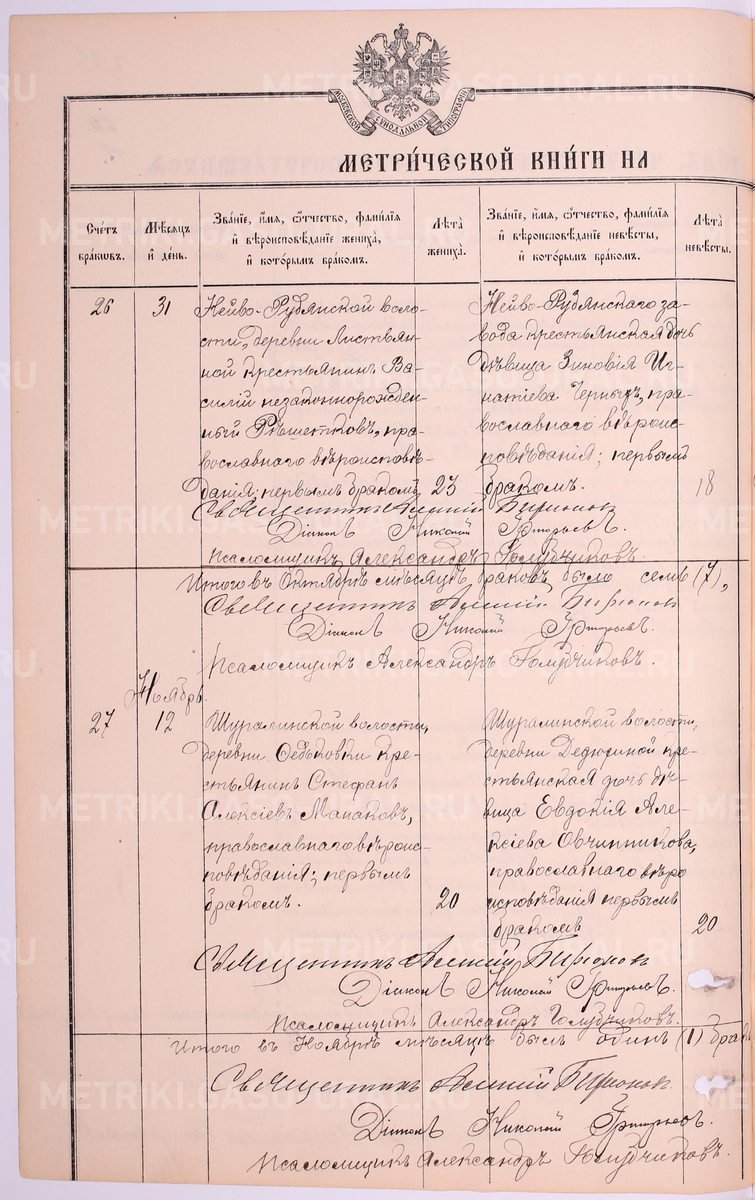 МОСКОВСКОЙ СѴНОДАЛЬНОЙ ТИПОГРАФІИ
МЕТРИ́ЧЕСКОЙ КНИ́ГИ НА
Сче́тъ бра́кωвъ.
Мѣ́сяцъ и҆ де́нь.
Зва́нїе, и҆́мя, ѻ҆́тчество, фами́лїя и҆ вѣроисповѣ́данїе жениха̀, и҆ кото́рымъ бра́комъ.
Лѣ́та жениха̀.
Зва́нїе, и҆́мя, ѻ҆́тчество, фами́лїя и҆ вѣроисповѣ́данїе невѣ́сты, и҆ кото́рымъ бра́комъ.
Лѣ́та невѣ́сты.
26
31
Нейво-Рудянской воло-
сти, деревни Листвян-
ной крестьянинъ Ва-
силій незаконнорожден-
ный Рѣшетковъ, пра-
вославнаго вѣроисповѣ-
данія; первымъ бракомъ,
23
Нейво-Рудянскаго за-
вода крестьянская дочь
дѣвица Зиновія Иг-
натіева Черныхъ, пра-
вославнаго вѣроис-
повѣданія; первымъ
бракомъ.
18
Священникъ Бирюков
Діаконъ Николай Григорьевъ.
Псаломщикъ Александръ Голубчиковъ.
Итого въ Октябрѣ мѣсяцѣ браковъ было семь (7).
Священникъ Бирюков
Діаконъ Николай Григорьевъ.
Псаломщикъ Александръ Голубчиковъ.
Ноябрь.
27
12
Шуралинской волости,
деревни Осѣковки кре-
стьянинъ Стефанъ
Алексіевъ Манаковъ,
православнаго вѣроис-
повѣданія; первымъ
бракомъ.
20
Шуралинской волости,
деревни Дедюхиной кре-
стьянская дочь дѣ-
вица Евдокія Але-
ксіева Овчинникова,
православнаго вѣро
исповѣданія первымъ
бракомъ
20
Священникъ Бирюков
Діаконъ Николай Григорьевъ.
Псаломщикъ Александръ Голубчиковъ.
Итого въ Ноябрѣ мѣсяцѣ былъ одинъ (1) бракъ
Священникъ Бирюков
Діаконъ Николай Григорьевъ.
Псаломщикъ Александръ Голубчиковъ.
METRIKI.GASO-URAL.RU